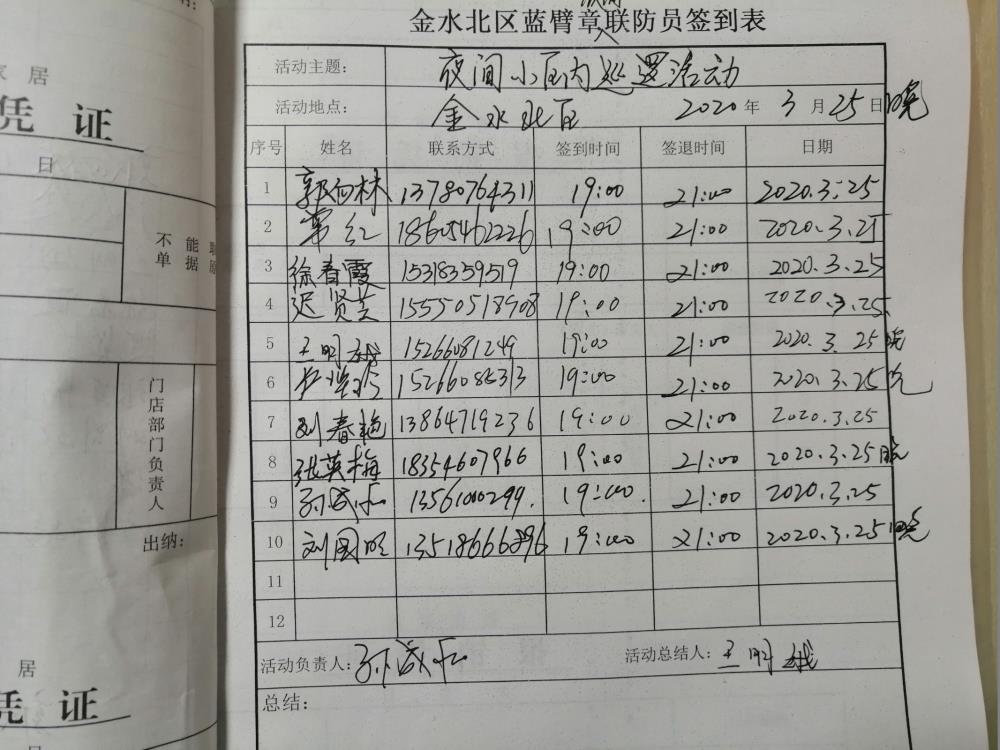 金水北区蓝臂章联防员签到表
活动主题： 夜间小区内巡逻活动
活动地点： 金水北区 2020年3月25日晚
序号 姓名 联系方式 签到时间 签退时间 日期
1 郭向林 13780764311 19:00 21:00 2020.3.25
2 常红 18605462226 19:00 21:00 2020.3.25
3 徐春霞 15318359519 19:00 21:00 2020.3.25
4 迟贤芸 15550518908 19:00 21:00 2020.3.25
5 王明 15266081249 19:00 21:00 2020.3.25晚
6 15266085313 19:00 21:00 2020.3.25晚
7 刘春艳 13864719236 19:00 21:00 2020.3.25
8 张英梅 18354607966 19:00 21:00 2020.3.25晚
9 孙成 13561000299. 19:00. 21:00 2020.3.25
10 刘国 13518666896 19:00 21:00 2020.3.25日晚
11
12
活动负责人： 孙成 活动总结人： 王明
总结：
家居
凭证
日
不能
单据
门店部门负责人
出纳：
居
凭证